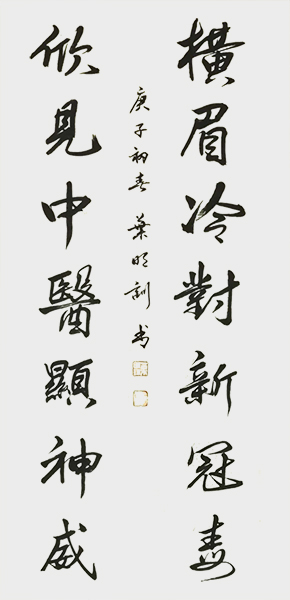 橫眉冷對新冠毒
欣見中醫顯神威
庚子初春 葉明訓 书